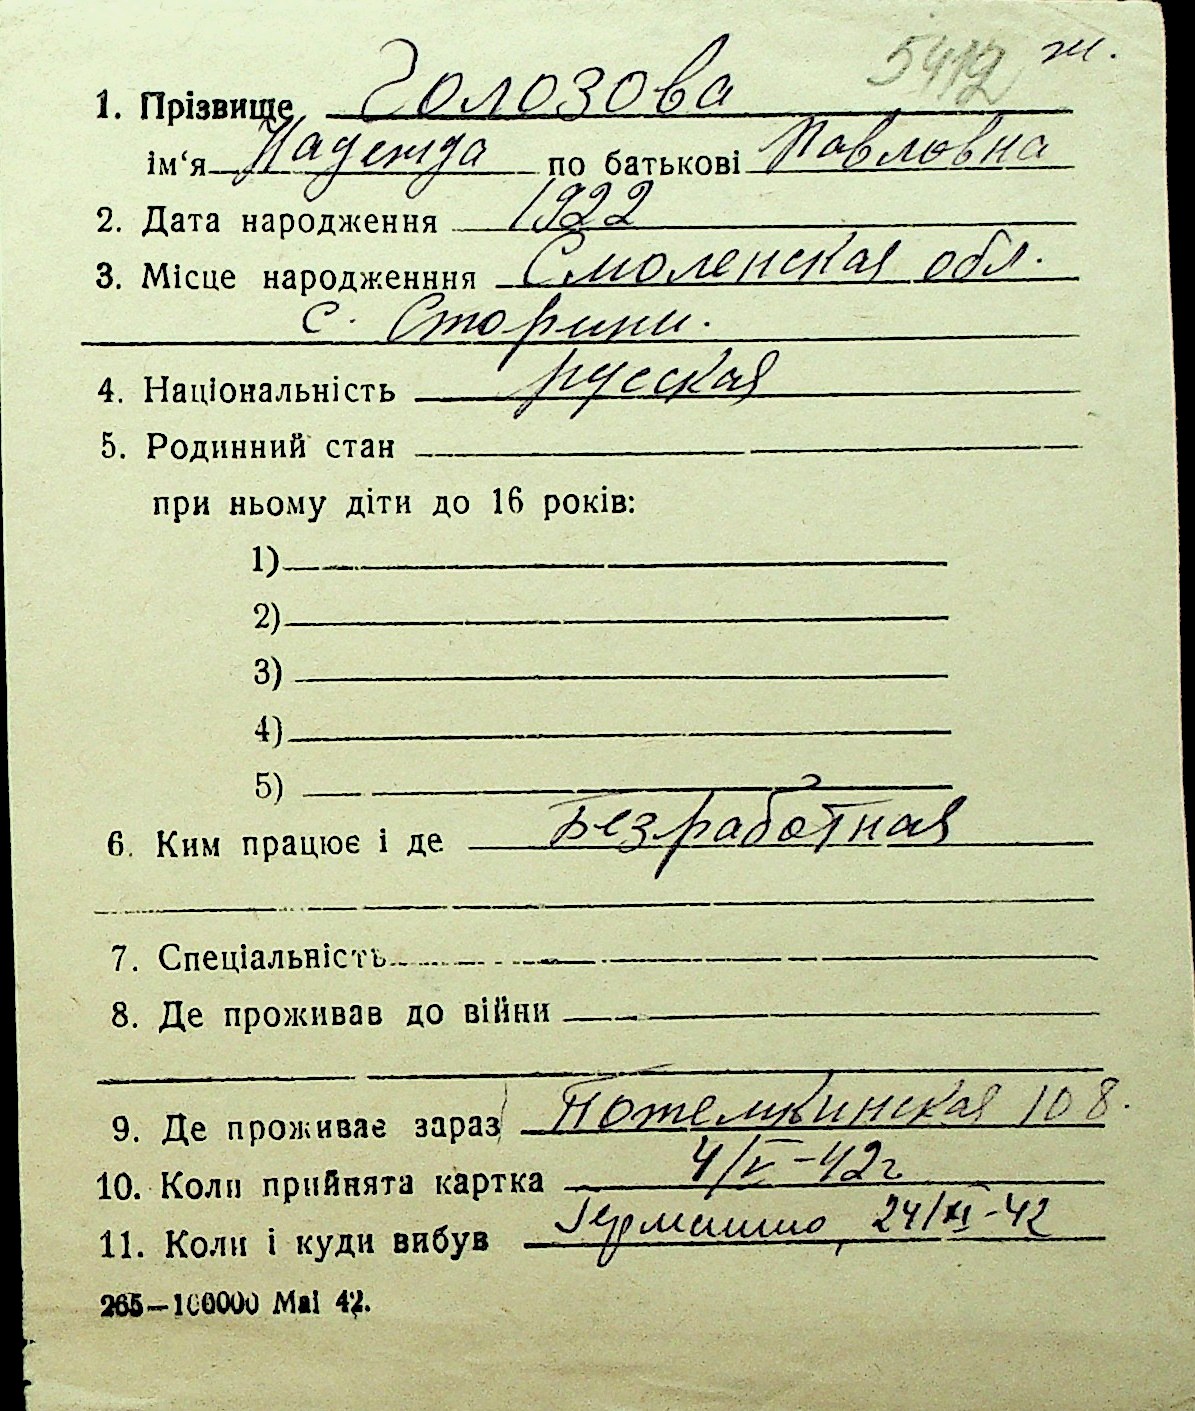 5412 ж.
1. Прізвище Голозова
ім‘я Надежда по батькові Павловна
2. Дата народження 1922
3. Місце народженння Смоленская обл.
с. Сторини.
4. Національність русская
5. Родинний стан
при ньому діти до 16 років:
1)
2)
3)
4)
5)
6. Ким працює і де Безработная
7. Спеціальність
8. Де проживав до війни
9. Де проживає зараз Потемкинская 108.
10. Коли прийнята картка 4/V-42г
11. Коли і куди вибув Германию, 24/XI-42
265—100000 Маі 42.